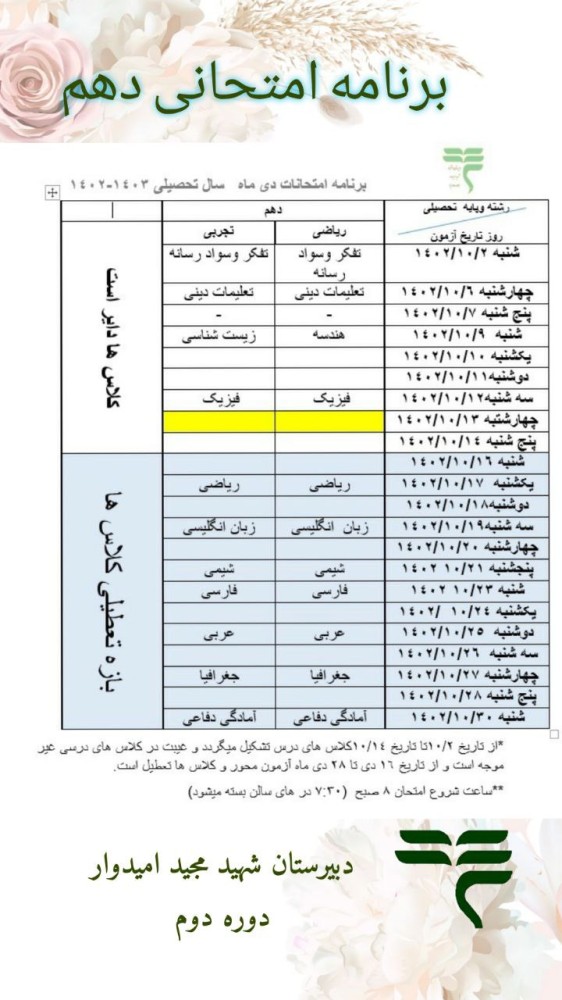 برنامه امتحانی دهم
برنامه امتحانات دی ماه سال تحصیلی ۱۴۰۳-۱۴۰۲
رشته وپایه تحصیلی
روز تاریخ آزمون
دهم
ریاضی تجربی
شنبه ۱۴۰۲/۱۰/۲ تفکر وسواد رسانه تفکر وسواد رسانه
چهارشنبه ۱۴۰۲/۱۰/۶ تعلیمات دینی تعلیمات دینی
پنج شنبه ۱۴۰۲/۱۰/۷ - -
شنبه ۱۴۰۲/۱۰/۹ هندسه زیست شناسی
یکشنبه ۱۴۰۲/۱۰/۱۰
دوشنبه۱۴۰۲/۱۰/۱۱
سه شنبه۱۴۰۲/۱۰/۱۲ فیزیک فیزیک
چهارشنبه ۱۴۰۲/۱۰/۱۳
پنج شنبه ۱۴۰۲/۱۰/۱۴
کلاس ها دایر است
شنبه ۱۴۰۲/۱۰/۱۶
یکشنبه ۱۴۰۲/۱۰/۱۷ ریاضی ریاضی
دوشنبه۱۴۰۲/۱۰/۱۸
سه شنبه۱۴۰۲/۱۰/۱۹ زبان انگلیسی زبان انگلیسی
چهارشنبه ۱۴۰۲/۱۰/۲۰
پنجشنبه ۱۰/۲۱ ۱۴۰۲ شیمی شیمی
شنبه ۱۰/۲۳ ۱۴۰۲ فارسی فارسی
یکشنبه ۱۰/۲۴ /۱۴۰۲
دوشنبه ۱۴۰۲/۱۰/۲۵ عربی عربی
سه شنبه ۱۴۰۲/۱۰/۲۶
چهارشنبه ۱۴۰۲/۱۰/۲۷ جغرافیا جغرافیا
پنج شنبه ۱۴۰۲/۱۰/۲۸
شنبه ۱۴۰۲/۱۰/۳۰ آمادگی دفاعی آمادگی دفاعی
بازه تعطیلی کلاس ها
*از تاریخ ۱۰/۲تا تاریخ ۱۰/۱۴کلاس های درس تشکیل میگردد و غیبت در کلاس های درسی غیر
موجه است و از تاریخ ۱۶ دی تا ۲۸ دی ماه آزمون محور و کلاس ها تعطیل است.
**ساعت شروع امتحان ۸ صبح (۷:۳۰ در های سالن بسته میشود)
دبیرستان شهید مجید امیدوار
دوره دوم